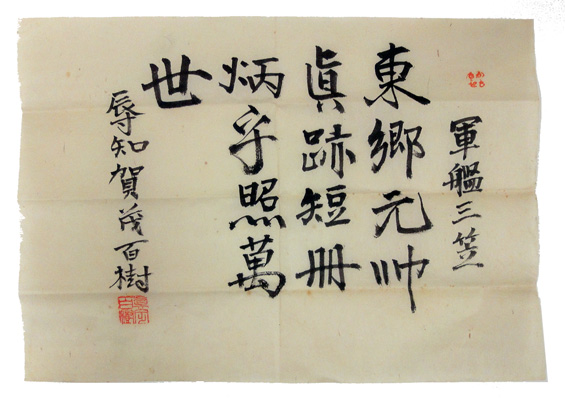 軍艦三笠
東郷元帅
眞跡短册
炳乎照萬
世
辱知賀茂百樹